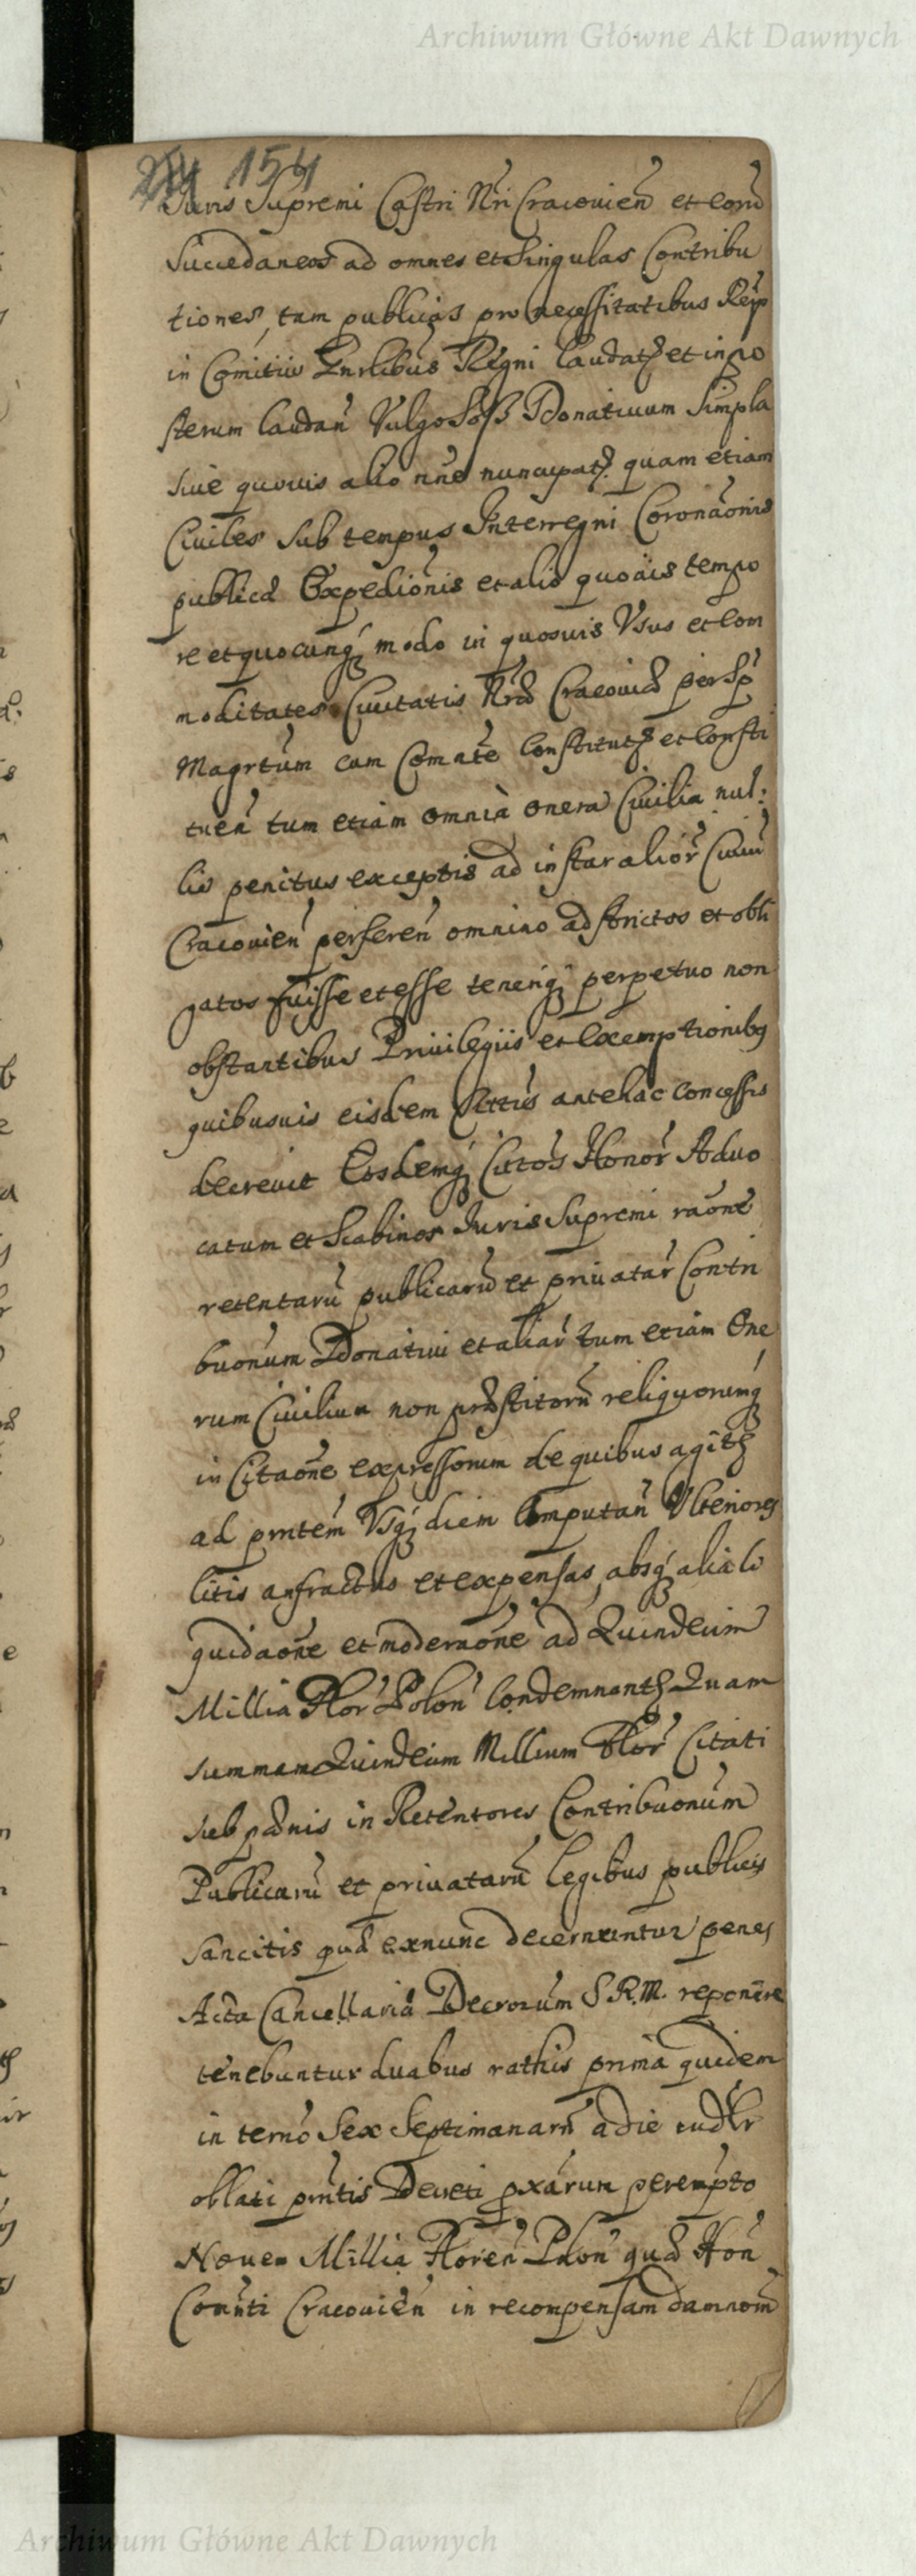 Archiwum Główne Akt Dawnych
154
Iuris Supremi Castri Nri Cracovien et eorũ
Succedaneos ad omnes et Singulas Contribu
tiones, tam publicas pro necessitatibus Reip
in Comitiis Gnrlibus Regni laudatas et in po
sterum laudan Vulgo Soss Donativum Simpla
sive quovis alio nne nuncupat quam etiam
Civiles Sub tempus Interregni Coronaonis
publicæ Expedionis et alio quovis tempo
re et quocunq modo in quosvis Usus et Com
moditates Civitatis Nræ Cracoviæ per Sp
Magrtum cum Comnte Constitut et Consti
tuen tum etiam omnia onera Civilia nul:
lis penitus exceptis ad instar alior Civiu
Cracovien perferen omnino adstrictos et obli
gatos fuisse et esse teneriq perpetuo non
obstantibus Privilegiis et Exemptionibq
quibusvis eisdem Cittis antehac concessis
decrevit Eosdemq Cittos Honor Advo
catum et Scabinos Iuris Supremi raone
retentarũ publicarũ et privatar Contri
buonum Donativi et aliar tum etiam One
rum Civilium non præstitorũ reliquorumq
in Citaone expressorum de quibus agit
ad pntem Usq diem Computan Ulteriores
litis anfractus et expensas, absq alia li
quidaone et moderaone ad Quindecim
Millia Flor Polon Condemnant Quam
summam Quindecim Millium Flor Citati
sub pænis in Retentores Contribuonum
Publicarũ et privatarũ legibus publicis
sancitis quæ exnunc decernuntur penes
Acta Cancellariæ Decrorum S. R. M. reponere
tenebuntur duabus rathis prima quidem
in termo Sex Septimanarũ a die
oblati pntis Decreti pxarum perempto
Novem Millia Floren Plon quæ Hon
Comnti Cracovien in recompensam damnorũ
Archiwum Główne Akt Dawnych